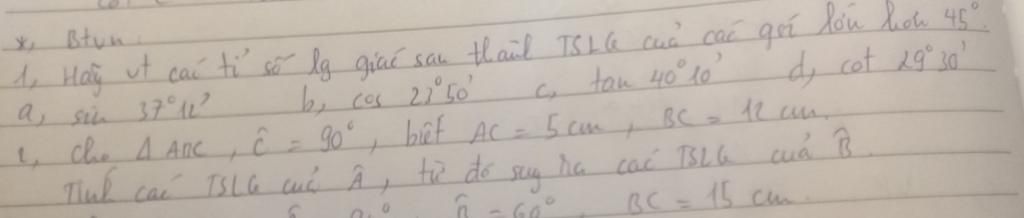 *, Btvn.
1, Hãy vt các tỉ số lg giác sau thành TSLG của các góc lớn hơn 45°.
a, sin 37°12' b, cos 23°50' c, tan 40°10' d, cot 29°30'
2, Cho Δ ABC, Ĉ = 90°, biết AC = 5 cm, BC = 12 cm.
Tính các TSLG của Â, từ đó suy ra các TSLG của B̂.
B̂ = 60° BC = 15 cm